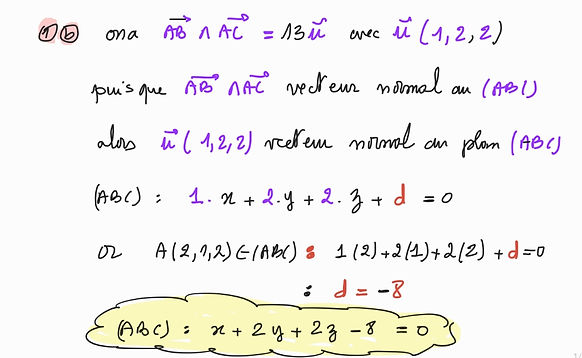 1 b on a AB ∧ AC = 13 u avec u (1, 2, 2)
puis que AB ∧ AC vecteur normal au (ABC)
alors u (1, 2, 2) vecteur normal au plan (ABC)
(ABC) : 1. x + 2. y + 2. z + d = 0
or A(2,1,2) ∈ (ABC) : 1(2)+2(1)+2(2) + d=0
: d = -8
(ABC) : x + 2y + 2z - 8 = 0